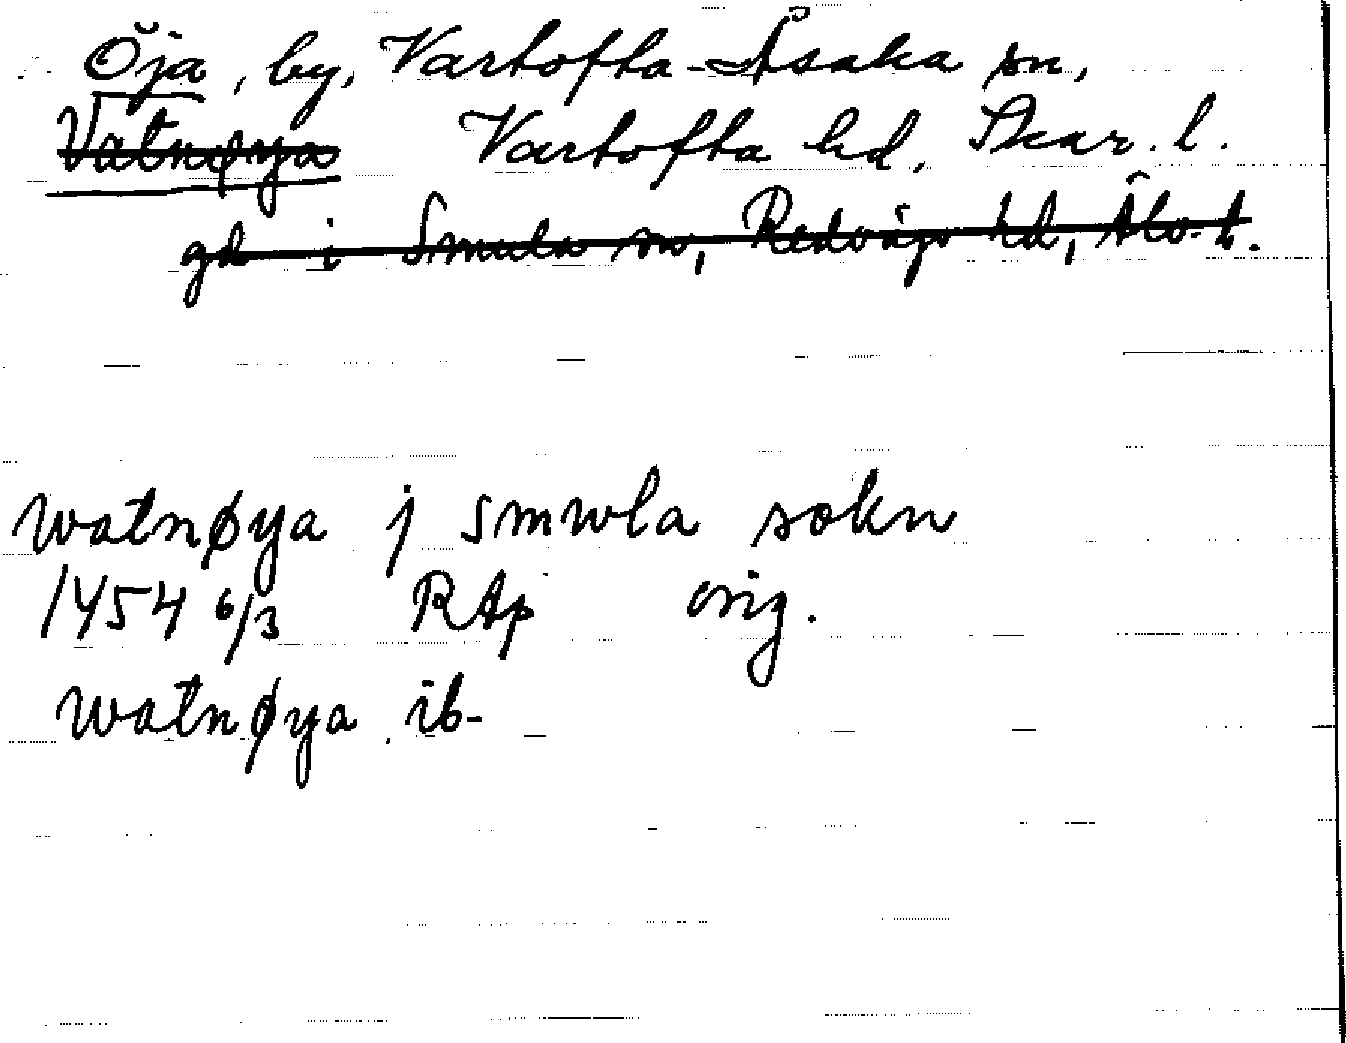 Öja, by, Vartofta-Åsaka sn,
Vatnøya Vartofta hd, Skar. l.
gd i Smula sn, Redvägs hd, Älvs. l.
watnøya j smwla sokn
1454 6/3 RAp orig.
watnøya ib-